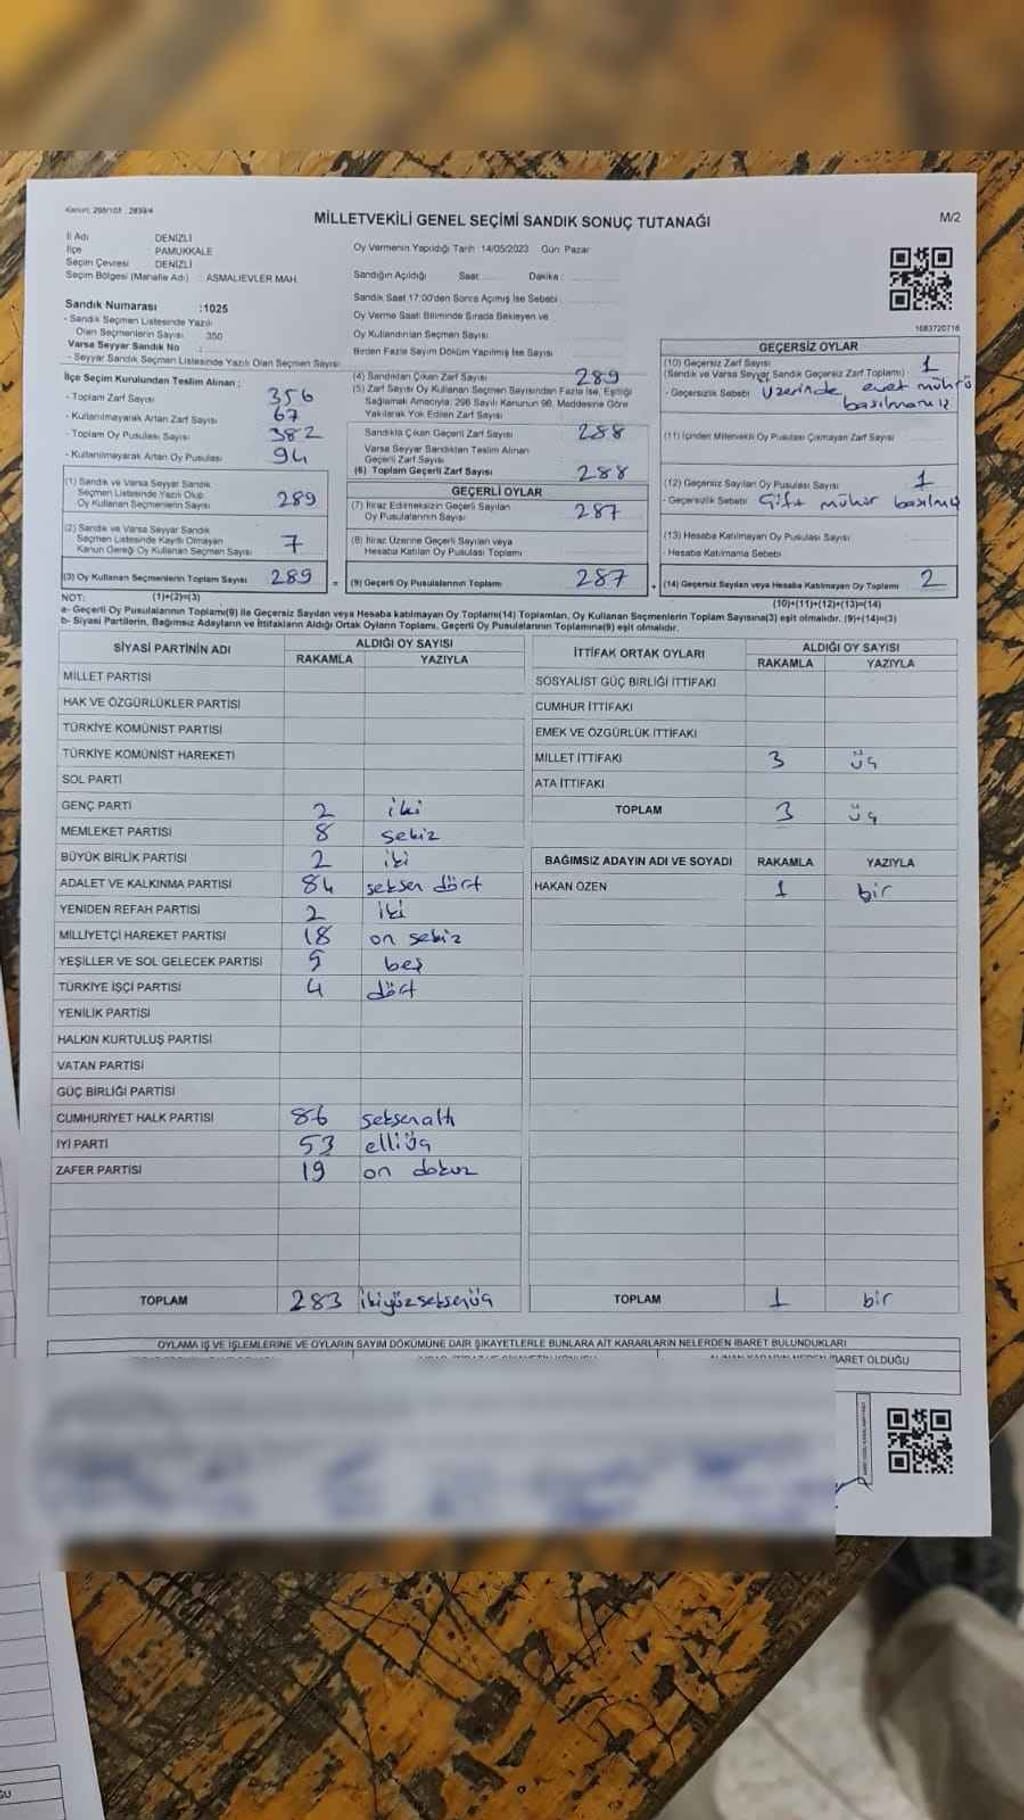 Kanun: 298/105 ; 2839/4
MİLLETVEKİLİ GENEL SEÇİMİ SANDIK SONUÇ TUTANAĞI
M/2
İl Adı DENİZLİ
İlçe PAMUKKALE
Seçim Çevresi DENİZLİ
Seçim Bölgesi (Mahalle Adı) : ASMALIEVLER MAH.
Oy Vermenin Yapıldığı Tarih :14/05/2023 Gün: Pazar
Sandığın Açıldığı Saat:........ Dakika :
Sandık Saat 17:00'den Sonra Açılmış İse Sebebi :
Oy Verme Saati Bitiminde Sırada Bekleyen ve
Oy Kullandırılan Seçmen Sayısı
Birden Fazla Sayım Döküm Yapılmış İse Sayısı
1683720716
Sandık Numarası :1025
- Sandık Seçmen Listesinde Yazılı
Olan Seçmenlerin Sayısı 350
Varsa Seyyar Sandık No :
- Seyyar Sandık Seçmen Listesinde Yazılı Olan Seçmen Sayısı
İlçe Seçim Kurulundan Teslim Alınan :
- Toplam Zarf Sayısı 356
- Kullanılmayarak Artan Zarf Sayısı 67
- Toplam Oy Pusulası Sayısı 382
- Kullanılmayarak Artan Oy Pusulası 94
(1) Sandık ve Varsa Seyyar Sandık
Seçmen Listesinde Yazılı Olup
Oy Kullanan Seçmenlerin Sayısı 289
(2) Sandık ve Varsa Seyyar Sandık
Seçmen Listesinde Kayıtlı Olmayan
Kanun Gereği Oy Kullanan Seçmen Sayısı 7
(3) Oy Kullanan Seçmenlerin Toplam Sayısı 289
(4) Sandıktan Çıkan Zarf Sayısı 289
(5) Zarf Sayısı Oy Kullanan Seçmen Sayısından Fazla İse, Eşitliği
Sağlamak Amacıyla; 298 Sayılı Kanunun 98. Maddesine Göre
Yakılarak Yok Edilen Zarf Sayısı
Sandıkta Çıkan Geçerli Zarf Sayısı 288
Varsa Seyyar Sandıktan Teslim Alınan
Geçerli Zarf Sayısı
(6) Toplam Geçerli Zarf Sayısı 288
GEÇERLİ OYLAR
(7) İtiraz Edilmeksizin Geçerli Sayılan
Oy Pusulalarının Sayısı 287
(8) İtiraz Üzerine Geçerli Sayılan veya
Hesaba Katılan Oy Pusulası Toplamı
= (9) Geçerli Oy Pusulalarının Toplamı 287
GEÇERSİZ OYLAR
(10) Geçersiz Zarf Sayısı 1
(Sandık ve Varsa Seyyar Sandık Geçersiz Zarf Toplamı) :
- Geçersizlik Sebebi üzerinde evet mührü
basılmamız
(11) İçinden Milletvekili Oy Pusulası Çıkmayan Zarf Sayısı
(12) Geçersiz Sayılan Oy Pusulası Sayısı 1
- Geçersizlik Sebebi Çift mühür basılmış
(13) Hesaba Katılmayan Oy Pusulası Sayısı
- Hesaba Katılmama Sebebi
(14) Geçersiz Sayılan veya Hesaba Katılmayan Oy Toplamı 2
NOT: (1)+(2)=(3)
(10)+(11)+(12)+(13)=(14)
a- Geçerli Oy Pusulalarının Toplamı(9) ile Geçersiz Sayılan veya Hesaba katılmayan Oy Toplamı(14) Toplamları, Oy Kullanan Seçmenlerin Toplam Sayısına(3) eşit olmalıdır. (9)+(14)=(3)
b- Siyasi Partilerin, Bağımsız Adayların ve İttifakların Aldığı Ortak Oyların Toplamı, Geçerli Oy Pusulalarının Toplamına(9) eşit olmalıdır.
SİYASİ PARTİNİN ADI
ALDIĞI OY SAYISI
RAKAMLA YAZIYLA
MİLLET PARTİSİ
HAK VE ÖZGÜRLÜKLER PARTİSİ
TÜRKİYE KOMÜNİST PARTİSİ
TÜRKİYE KOMÜNİST HAREKETİ
SOL PARTİ
GENÇ PARTİ 2 iki
MEMLEKET PARTİSİ 8 sekiz
BÜYÜK BİRLİK PARTİSİ 2 iki
ADALET VE KALKINMA PARTİSİ 84 seksen dört
YENİDEN REFAH PARTİSİ 2 iki
MİLLİYETÇİ HAREKET PARTİSİ 18 on sekiz
YEŞİLLER VE SOL GELECEK PARTİSİ 5 beş
TÜRKİYE İŞÇİ PARTİSİ 4 dört
YENİLİK PARTİSİ
HALKIN KURTULUŞ PARTİSİ
VATAN PARTİSİ
GÜÇ BİRLİĞİ PARTİSİ
CUMHURİYET HALK PARTİSİ 86 seksenaltı
İYİ PARTİ 53 elliüç
ZAFER PARTİSİ 19 on dokuz
TOPLAM 283 ikiyüzseksenüç
İTTİFAK ORTAK OYLARI
ALDIĞI OY SAYISI
RAKAMLA YAZIYLA
SOSYALİST GÜÇ BİRLİĞİ İTTİFAKI
CUMHUR İTTİFAKI
EMEK VE ÖZGÜRLÜK İTTİFAKI
MİLLET İTTİFAKI 3 üç
ATA İTTİFAKI
TOPLAM 3 üç
BAĞIMSIZ ADAYIN ADI VE SOYADI RAKAMLA YAZIYLA
HAKAN ÖZEN 1 bir
TOPLAM 1 bir
OYLAMA İŞ VE İŞLEMLERİNE VE OYLARIN SAYIM DÖKÜMÜNE DAİR ŞİKAYETLERLE BUNLARA AİT KARARLARIN NELERDEN İBARET BULUNDUKLARI
İBARET OLDUĞU